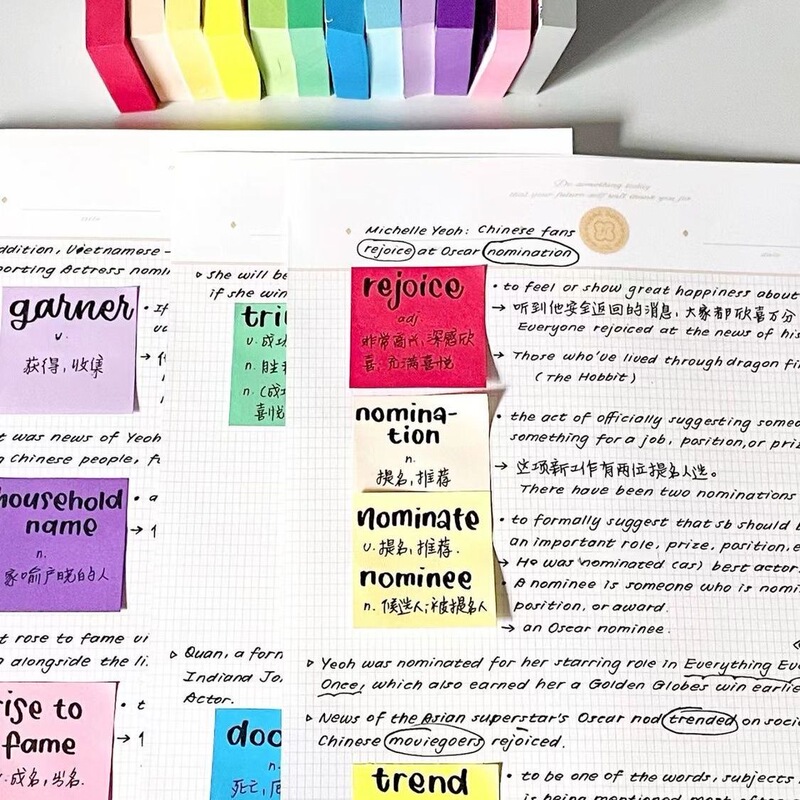 Do something today
that your future self will thank you for
Michelle Yeoh: Chinese fans
rejoice at Oscar nomination
rejoice
adj.
非常高兴,深感欣
喜,充满喜悦
• to feel or show great happiness about
→ 听到他安全返回的消息,大家都欣喜万分
Everyone rejoiced at the news of his
→ Those who've lived through dragon fi
(The Hobbit)
nomina-
tion
n.
提名,推荐
• the act of officially suggesting someo
something for a job, position, or priz
→ 这项新工作有两位提名人选。
There have been two nominations
nominate
v. 提名,推荐.
nominee
n. 候选人;被提名人
• to formally suggest that sb should b
an important role, prize, position, e
→ He was nominated (as) best actor
• A nominee is someone who is nomi
position, or award.
→ an Oscar nominee.
▷ Yeoh was nominated for her starring role in Everything Eve
Once, which also earned her a Golden Globes win earlie
▷ News of the Asian superstar's Oscar nod trended on soci
Chinese moviegoers rejoiced.
trend
• to be one of the words, subjects
is being mentioned most often
▷ She will be
if she win
tri
v. 成功
n. 胜
n. (成
喜悦
▷ Quan, a forn
Indiana Jo
Actor.
doo
n.
死亡,厄
ddition, Vietnamese-
porting Actress nomi
garner
v.
获得,收集
• If
t was news of Yeoh
n Chinese people, f
household
name
n.
家喻户晓的人
• a
t rose to fame vi
alongside the li
rise to
fame
v. 成名,出名.
• t